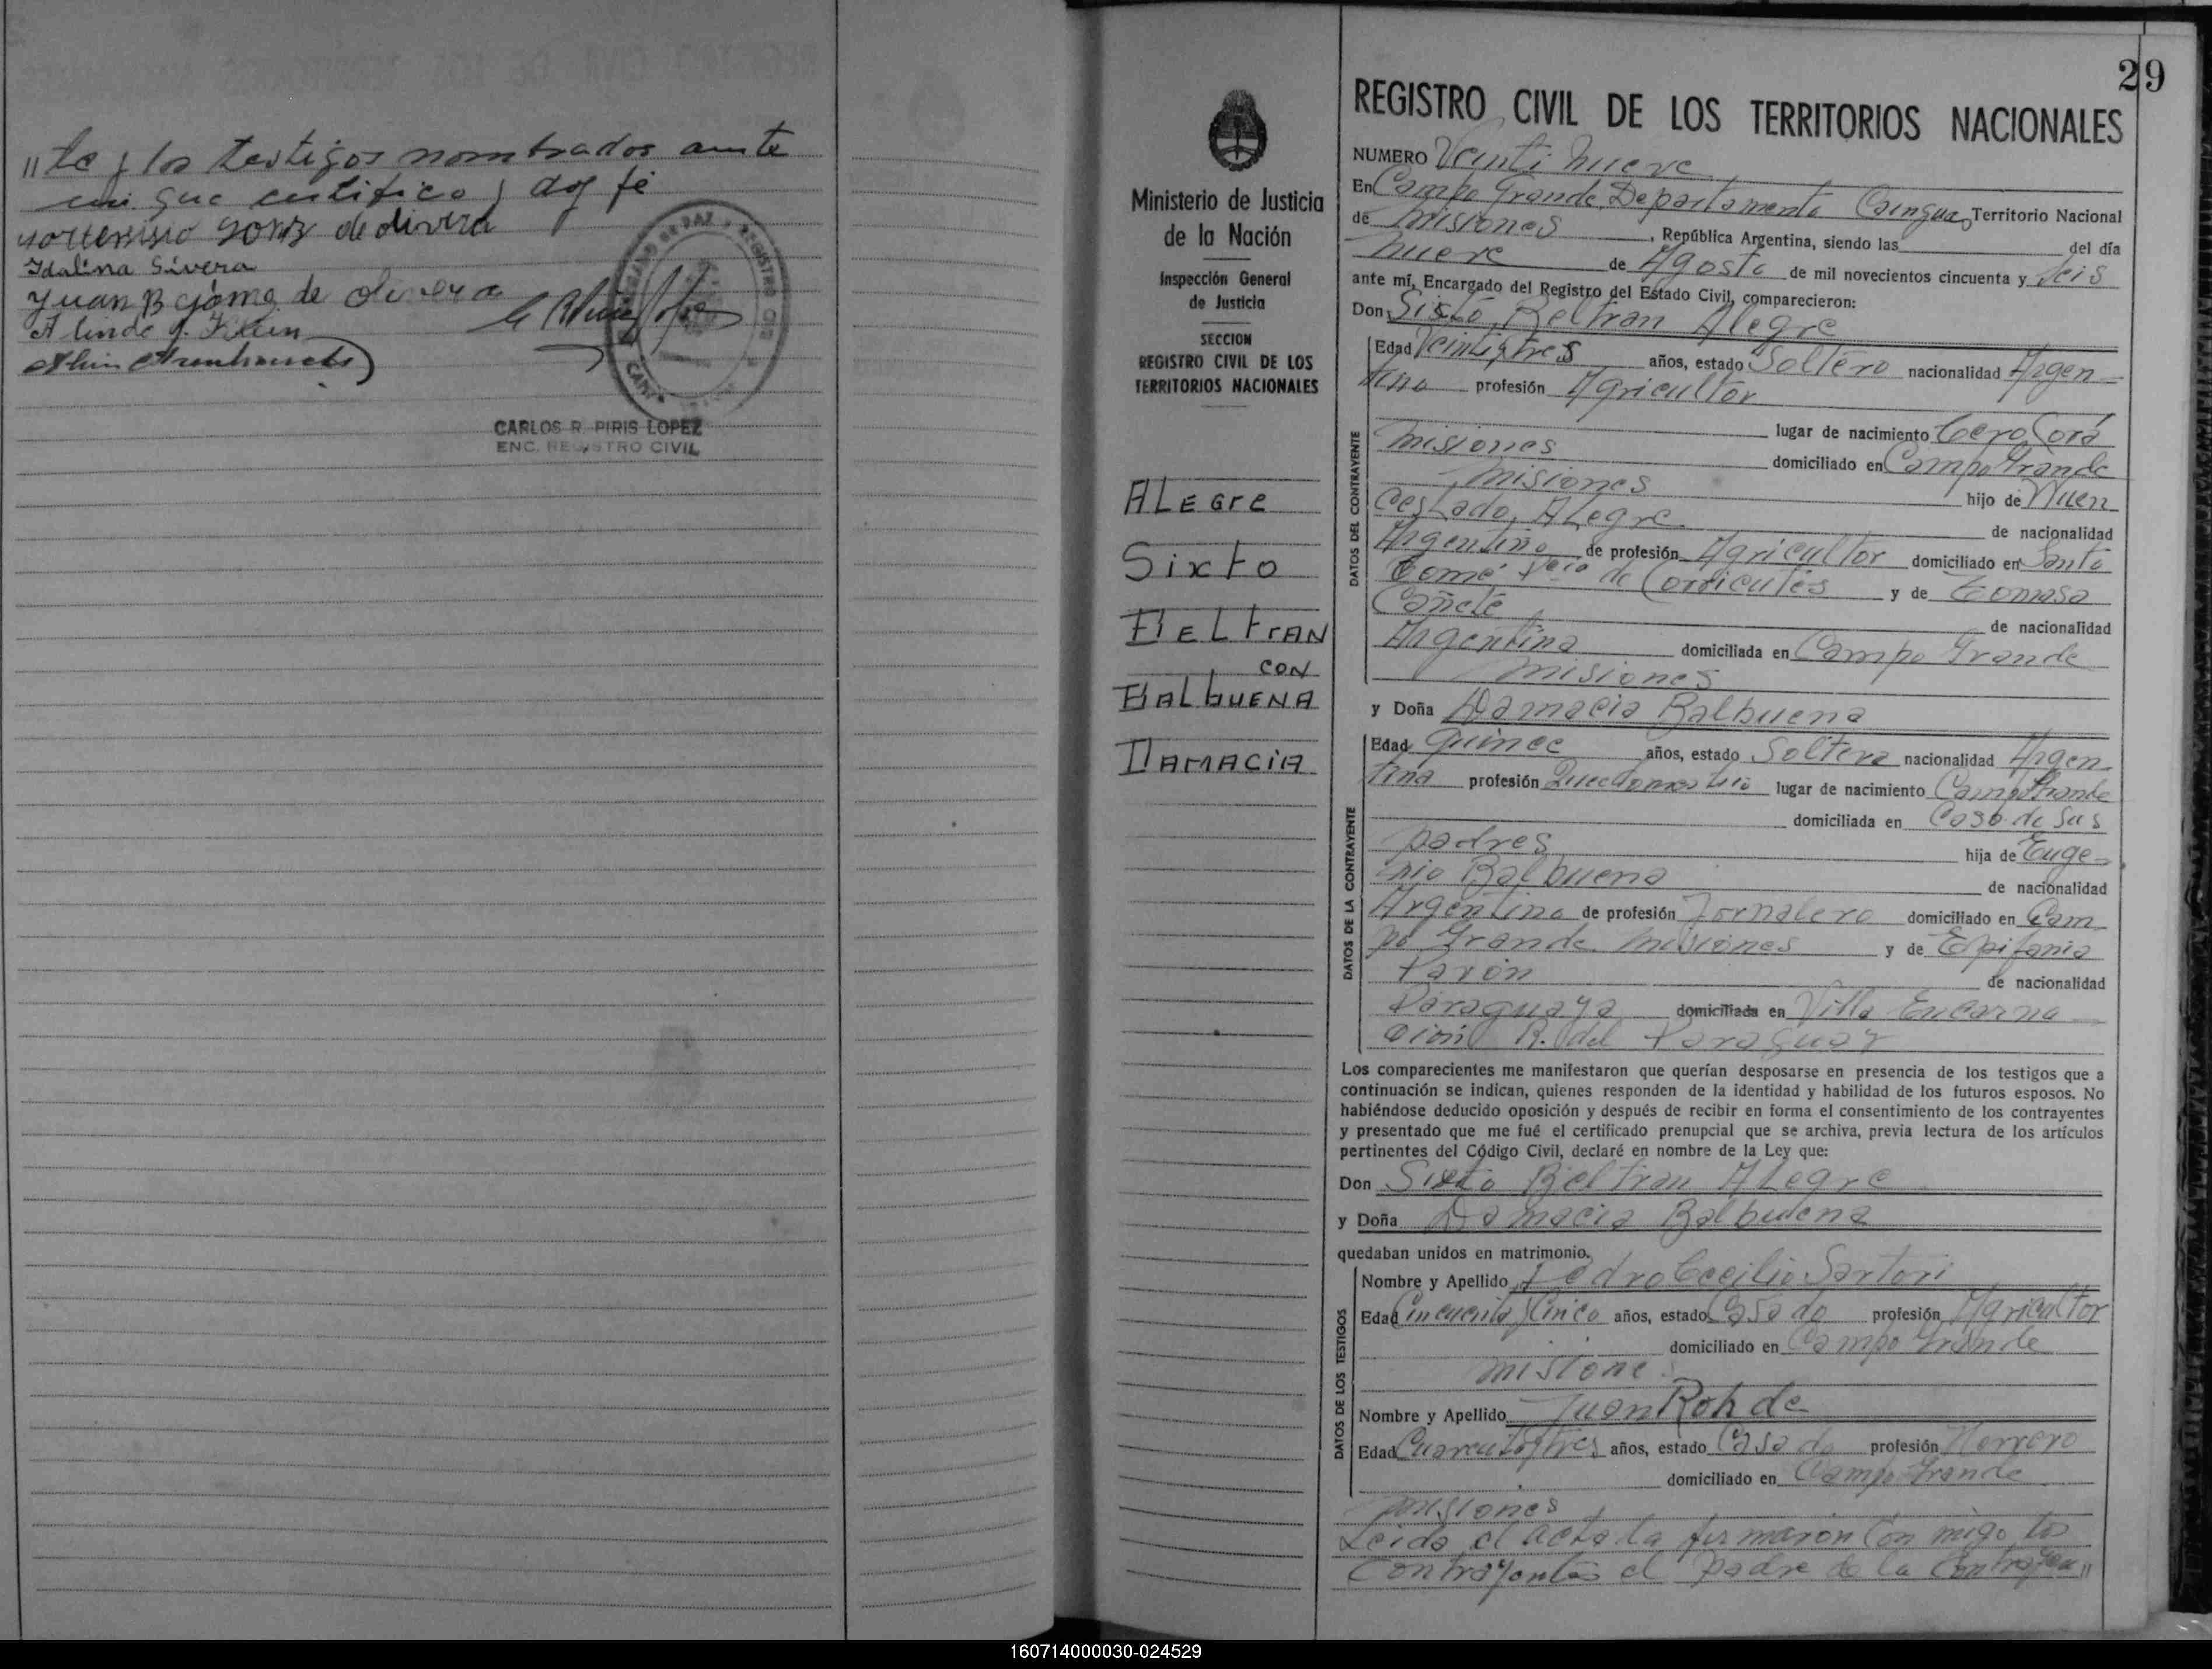 "te y los testigos nombrados ante
mi que certifico y doy fé
de oliveira
Idalina Sivera
Juan B Gomz de olivera
Alindo J. Klein
CARLOS R. PIRIS LOPEZ
ENC. REGISTRO CIVIL
Ministerio de Justicia
de la Nación
Inspección General
de Justicia
SECCION
REGISTRO CIVIL DE LOS
TERRITORIOS NACIONALES
ALEGrE
Sixto
BELtrAN
CON
BALbUENA
DAMACiA
29
REGISTRO CIVIL DE LOS TERRITORIOS NACIONALES
NUMERO Veinti nueve
En Campo Grande, Departamento Cainguas, Territorio Nacional
de Misiones, República Argentina, siendo las del día
nueve de Agosto de mil novecientos cincuenta y seis
ante mí, Encargado del Registro del Estado Civil, comparecieron:
Don Sixto Beltran Alegre
DATOS DEL CONTRAYENTE
Edad Veintiytres años, estado Soltero nacionalidad Argen-
tino profesión Agricultor
lugar de nacimiento Cero Corá
Misiones domiciliado en Campo Grande
Misiones hijo de Wuen
ceslado Alegre de nacionalidad
Argentino de profesión Agricultor domiciliado en Santo
Tomé Pcia de Corrientes y de Tomasa
Cañete de nacionalidad
Argentina domiciliada en Campo Grande
Misiones
y Doña Damacia Balbuena
DATOS DE LA CONTRAYENTE
Edad quince años, estado Soltera nacionalidad Argen-
tina profesión lugar de nacimiento Campo Grande
domiciliada en Casa de Sus
padres hija de Euge-
nio Balbuena de nacionalidad
Argentino de profesión Jornalero domiciliado en Cam
po Grande Misiones y de Epifania
Pavón de nacionalidad
Paraguaya domiciliada en Villa Encarna
ción R. del Paraguay
Los comparecientes me manifestaron que querían desposarse en presencia de los testigos que a
continuación se indican, quienes responden de la identidad y habilidad de los futuros esposos. No
habiéndose deducido oposición y después de recibir en forma el consentimiento de los contrayentes
y presentado que me fué el certificado prenupcial que se archiva, previa lectura de los artículos
pertinentes del Código Civil, declaré en nombre de la Ley que:
Don Sixto Beltran Alegre
y Doña Damacia Balbuena
quedaban unidos en matrimonio.
DATOS DE LOS TESTIGOS
Nombre y Apellido Pedro Cecilio Sartori
Edad Cincuenta y Cinco años, estado Casado profesión Agricultor
domiciliado en Campo Grande
Misione
Nombre y Apellido Juan Rohde
Edad Cuarentaytres años, estado Casado profesión Herrero
domiciliado en Campo Grande
Misiones
Leida el acta la firmaron Con migo los
Contrayentes el padre de la Contrayen"
160714000030-024529